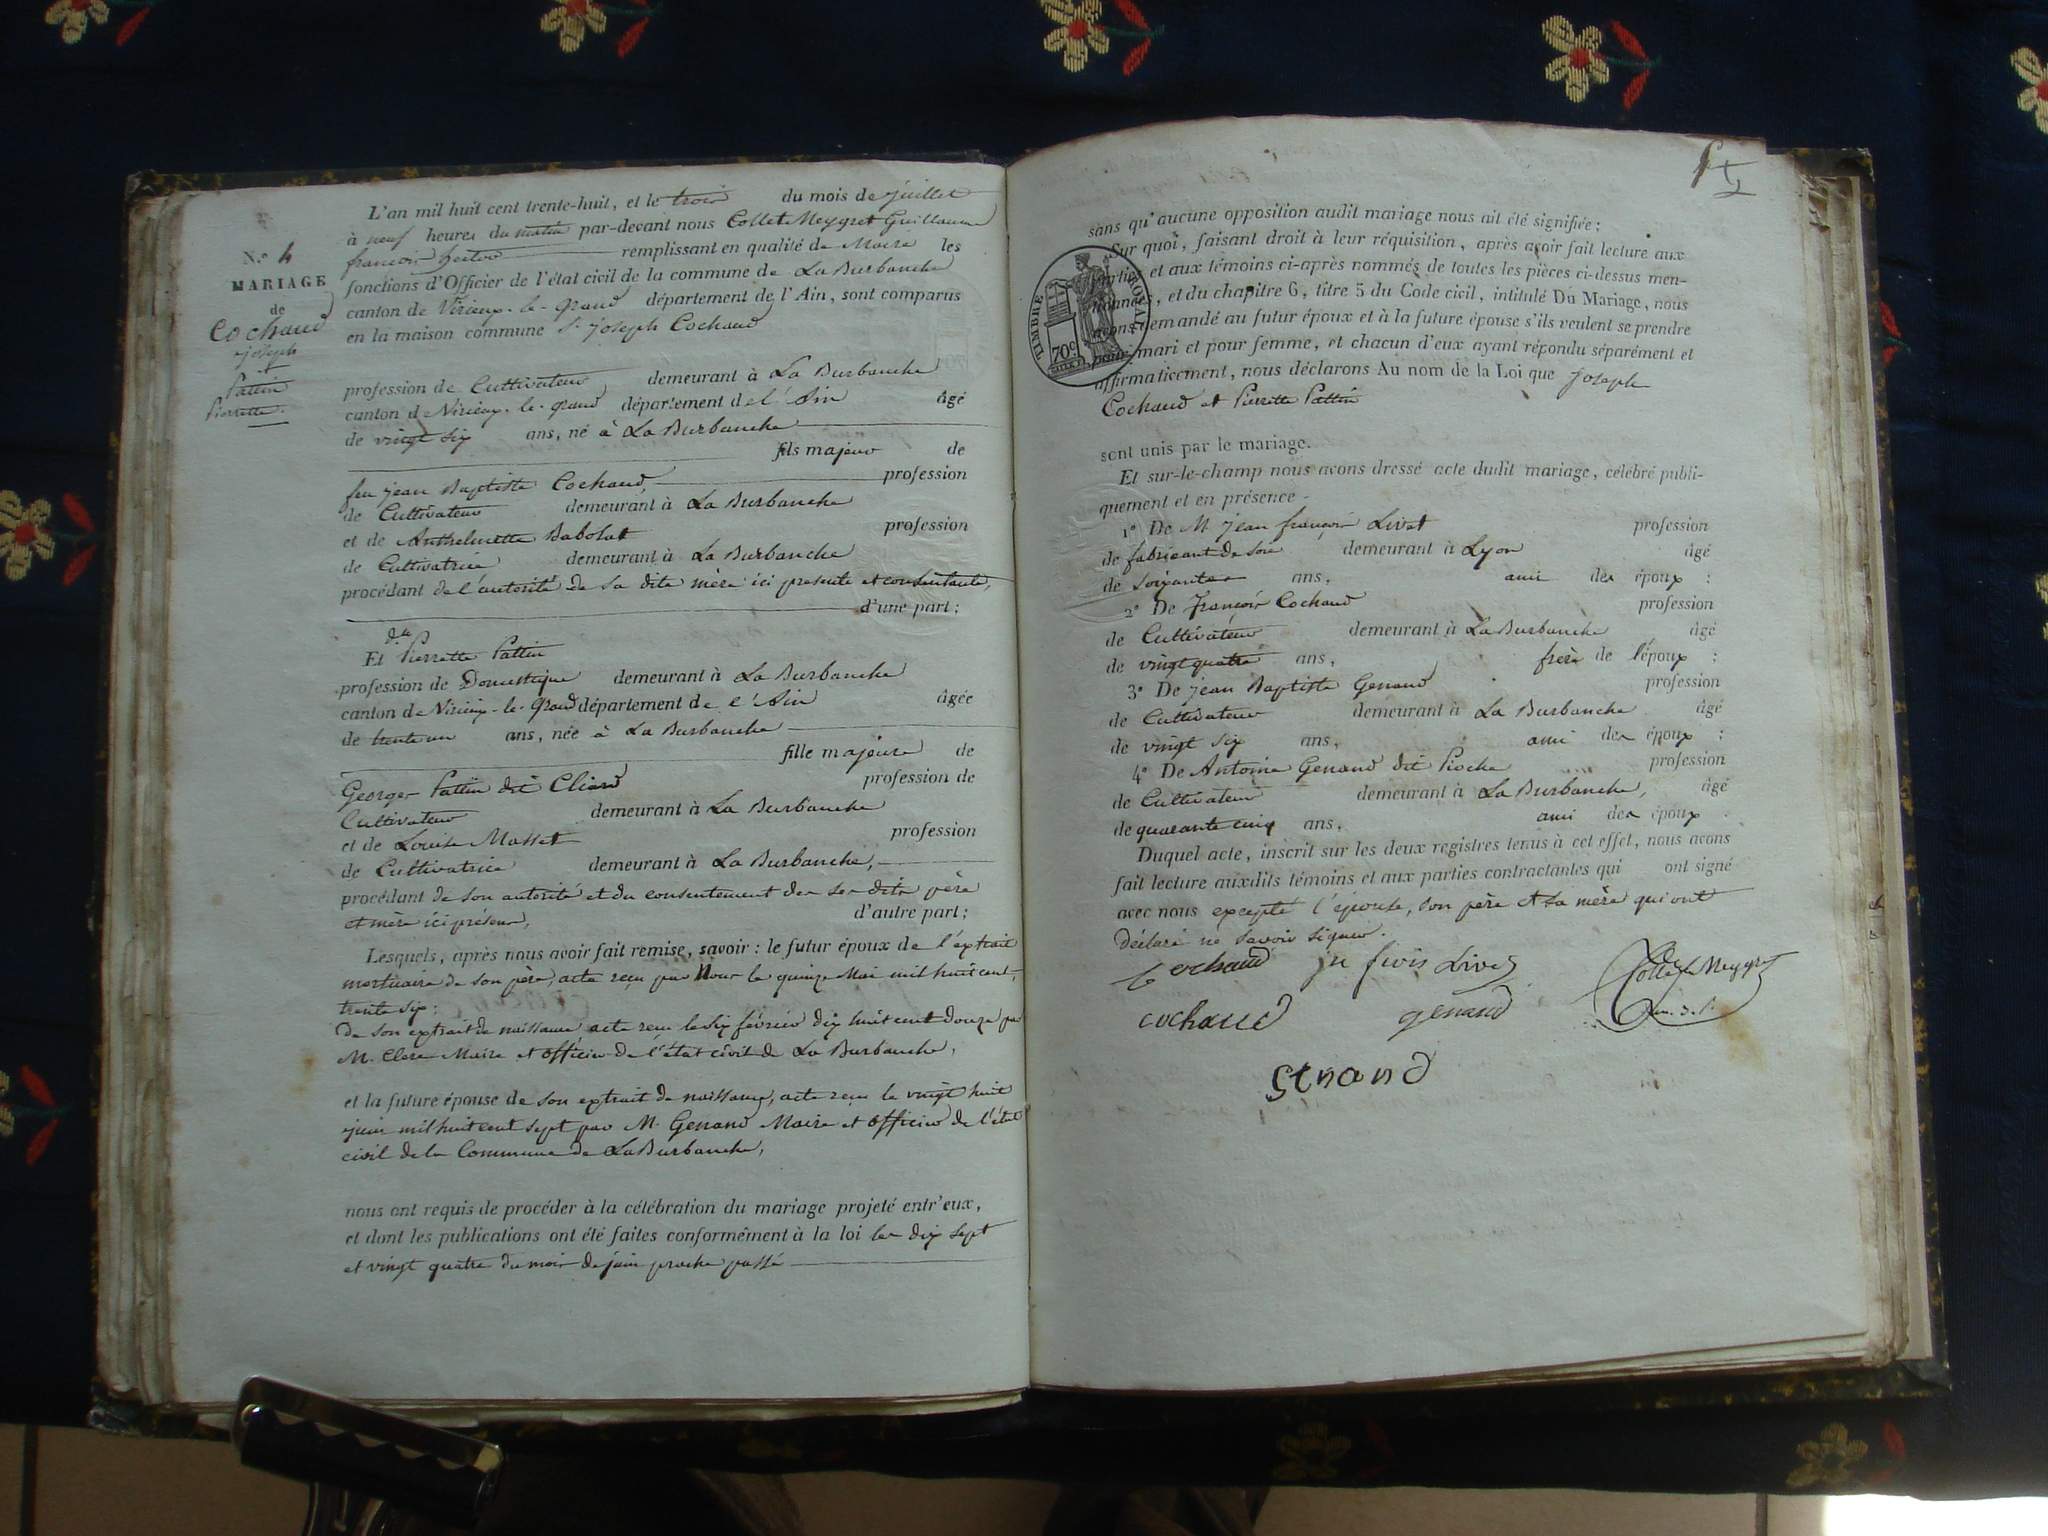 N.º 4
MARIAGE
de
Cochaud
joseph
et
Pattin
Pierrette.
L'an mil huit cent trente-huit, et le trois du mois de juillet
à neuf heures du matin par-devant nous Collet Meygret Guillaume
françois hector remplissant en qualité de Maire les
fonctions d'Officier de l'état civil de la commune de La Burbanche
canton de Virieux-le-grand département de l'Ain, sont comparus
en la maison commune Sr joseph Cochaud
profession de Cultivateur demeurant à La Burbanche
canton de Virieux-le-grand département de l'Ain âgé
de vingt six ans, né à La Burbanche
fils majeur de
feu jean Baptiste Cochaud, profession
de Cultivateur demeurant à La Burbanche
et de Anthelmette Babolat profession
de Cultivatrice demeurant à La Burbanche
procédant de l'autorité de sa dite mère ici presente et consentante,
d'une part;
Et dlle Pierrette Pattin
profession de Domestique demeurant à La Burbanche
canton de Virieux-le-Grand département de l'Ain âgée
de trente un ans, née à La Burbanche
fille majeure de
George Pattin dit Cliard profession de
Cultivateur demeurant à La Burbanche
et de Louise Masset profession
de Cultivatrice demeurant à La Burbanche,
procédant de son autorité et du consentement de ses dits père
et mère ici présens, d'autre part;
Lesquels, après nous avoir fait remise, savoir : le futur époux de l'extrait
mortuaire de son père, acte reçu par Nous le quinze Mai mil huit cent
trente six;
De son extrait de naissance acte reçu le six février dix huit cent douze par
M. Clerc Maire et officier de l'état civil de La Burbanche,
et la future épouse de son extrait de naissance, acte reçu le vingt huit
juin mil huit cent sept par M. Genand Maire et officier de l'état
civil de la Commune de La Burbanche,
nous ont requis de procéder à la célébration du mariage projeté entr'eux,
et dont les publications ont été faites conformément à la loi les dix sept
et vingt quatre du mois de juin proche passé
sans qu'aucune opposition audit mariage nous ait été signifiée;
Sur quoi, faisant droit à leur réquisition, après avoir fait lecture aux
parties et aux témoins ci-après nommés de toutes les pièces ci-dessus men-
tionnées, et du chapitre 6, titre 5 du Code civil, intitulé Du Mariage, nous
avons demandé au futur époux et à la future épouse s'ils veulent se prendre
pour mari et pour femme, et chacun d'eux ayant répondu séparément et
affirmativement, nous déclarons Au nom de la Loi que joseph
Cochaud et Pierrette Pattin
TIMBRE ROYAL
70c
sont unis par le mariage.
Et sur-le-champ nous avons dressé acte dudit mariage, célébré publi-
quement et en présence
1º De M. jean françois Livet profession
de fabricant de soie demeurant à Lyon âgé
de soixante ans, ami des époux ;
2º De françois Cochaud profession
de Cultivateur demeurant à La Burbanche âgé
de vingt quatre ans, frère de l'époux ;
3º De jean Baptiste Genand profession
de Cultivateur demeurant à La Burbanche âgé
de vingt six ans, ami des époux ;
4º De Antoine Genand dit Pioche profession
de Cultivateur demeurant à La Burbanche, âgé
de quarante cinq ans, ami des époux.
Duquel acte, inscrit sur les deux registres tenus à cet effet, nous avons
fait lecture auxdits témoins et aux parties contractantes qui ont signé
avec nous excepté l'épouse, son père et sa mère qui ont
déclaré ne savoir signer.
Cochaud jn frois Livet Collet Meygret
cochaud genand
Genand